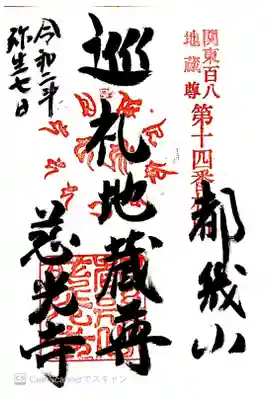 関東百八
地蔵尊
第十四番
都幾山
巡礼地蔵尊
慈光寺
令和二年
弥生七日
CamScannerでスキャン